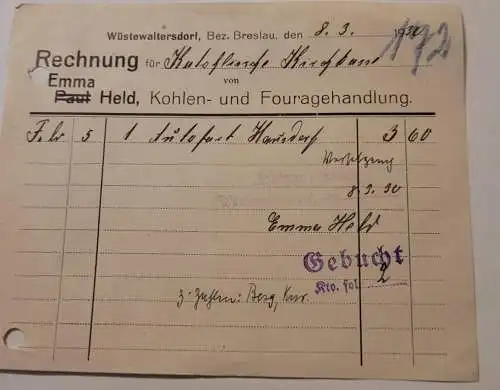 Wüstewaltersdorf, Bez. Breslau, den 8. 3. 1930
192
Rechnung für Katholische Kirchkasse
von
Emma
Paul Held, Kohlen- und Fouragehandlung.
Febr 5 1 Autofart Hausdorf 3 60
8. 3. 30
Emma Held
Gebucht
Kto. fol. 2
z. Zahlen: Berg,